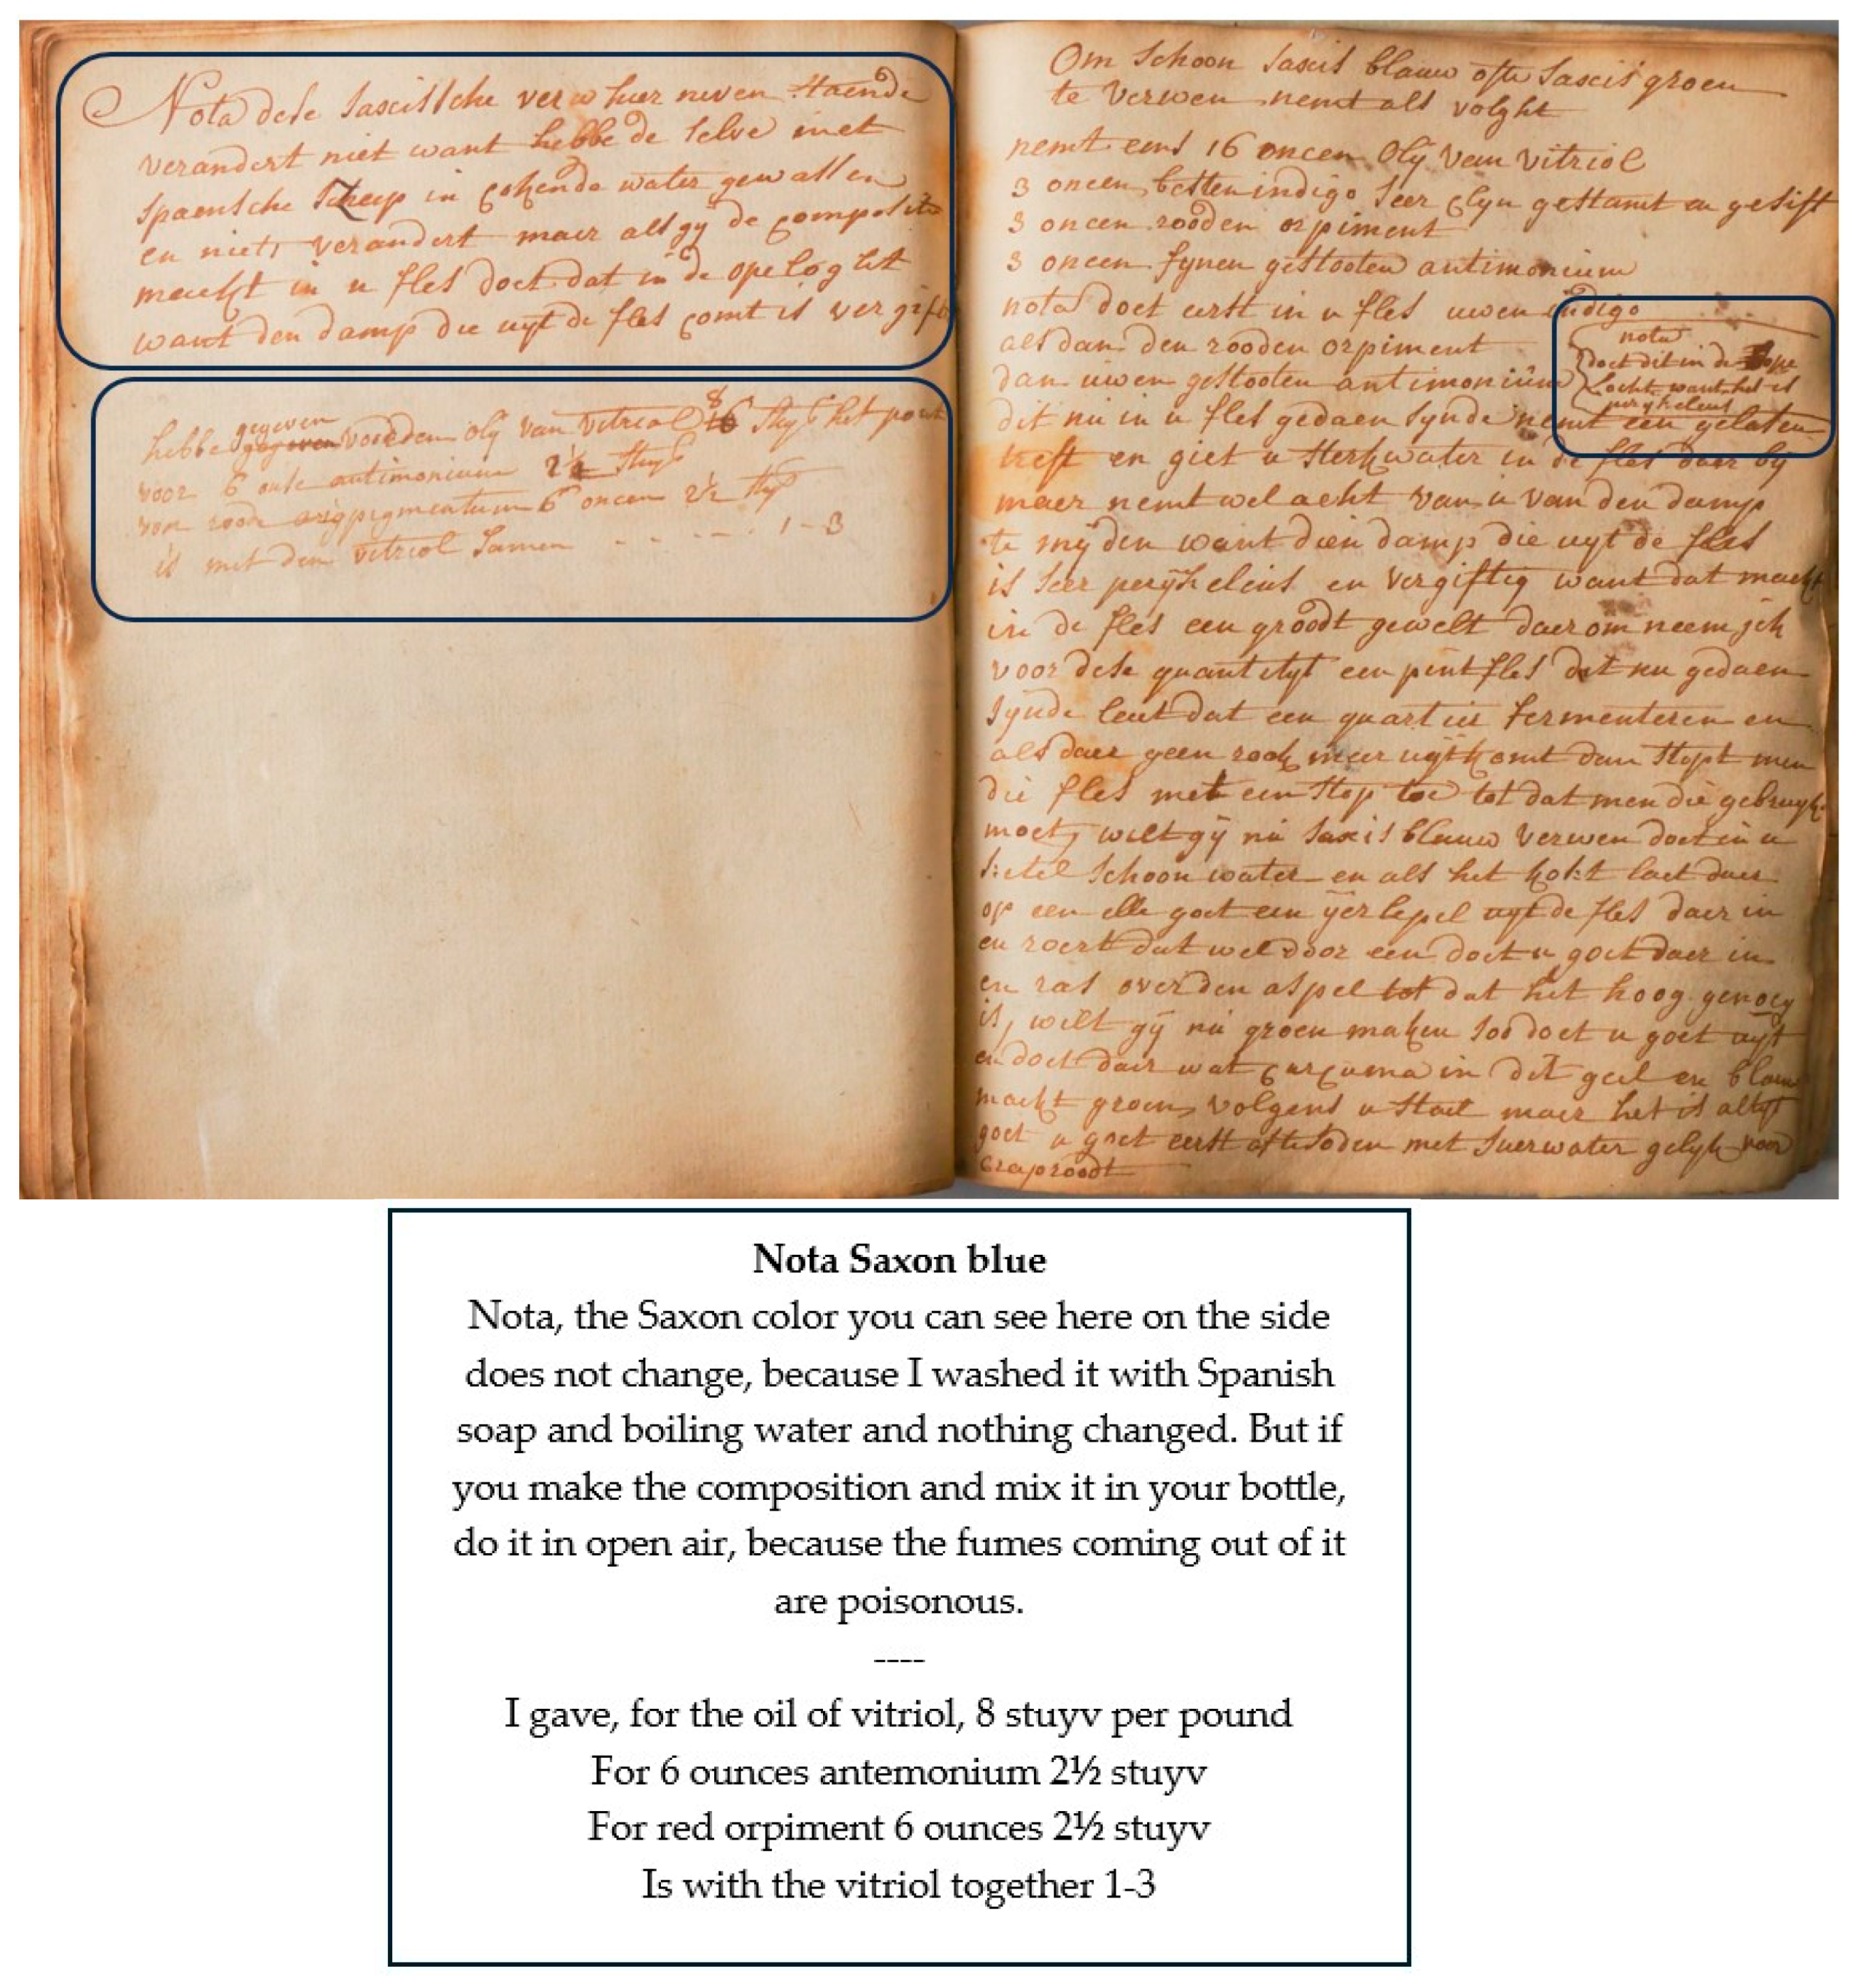 Nota dese saxcissche verw hier neven staende
verandert niet want hebbe de selve met
spaensche zeep in cokende water gewassen
en niets verandert maer als gy de composite
maekt in u fles doet dat in de ope loght
want den damp die uyt de fles comt is vergift
hebbe gegeven gegeven voor den oly van vitriol 8 16 stuy het pont
voor 6 onse antimonium 2½ stuy
voor roode origpigmentum 6 oncen 2½ stuy
is met den vitriol samen - - - - - 1-3
Om schoon saxcis blauw ofte saxcis groen
te verwen nemt als volght
nemt eens 16 oncen oly van vitriol
3 oncen besten indigo seer clyn gestamt en gesift
3 oncen rooden orpiment
3 oncen fynen gestooten antimonium
nota doet eerst in u fles uwen indigo
als dan den rooden orpiment
dan uwen gestooten antimonium
nota
doet dit in de ope
locht want het is
perykeleus
dit nu in u fles gedaen synde nemt een gelasen
treft en giet u sterkwater in de fles daer by
maer nemt wel acht van u van den damp
te myden want dien damp die uyt de fles
is seer perykeleus en vergiftig want dat maekt
in de fles een groodt gewelt daerom neem jck
voor dese quantityt een pintfles dit nu gedaen
synde laet dat een quartier fermenteren en
als daer geen rook meer uyt komt dan stopt men
die fles met een stop toe tot dat men die gebruyke
moet, wilt gy nu saxis blauw verwen doet in u
ketel schoon water en als het kokt laet daer
op een elle goet een yerlepel uyt de fles daer in
en roert dat wel door een doet u goet daer in
en ras over den aspel tot dat het hoog genoeg
is, wilt gy nu groen maken soo doet u goet uyt
en doet daer wat curcuma in dit geel en blauw
maekt groen volgens u stael maer het is altyt
goet u goet eerst af te soden met suerwater gelyk voor
craproodt
Nota Saxon blue
Nota, the Saxon color you can see here on the side
does not change, because I washed it with Spanish
soap and boiling water and nothing changed. But if
you make the composition and mix it in your bottle,
do it in open air, because the fumes coming out of it
are poisonous.
----
I gave, for the oil of vitriol, 8 stuyv per pound
For 6 ounces antemonium 2½ stuyv
For red orpiment 6 ounces 2½ stuyv
Is with the vitriol together 1-3